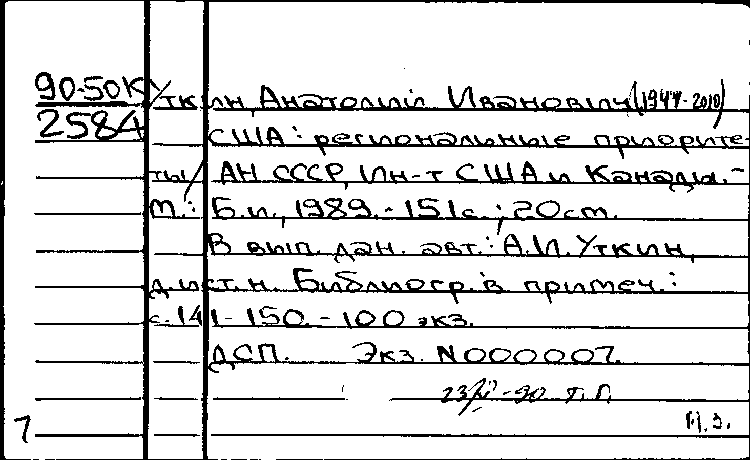 90-50К
2584
Уткин, Анатолий Иванович (1944-2010)
США: региональные приорите-
ты / АН СССР, Ин-т США и Канады. -
М.: Б.и., 1989. - 151с.; 20см.
В вып. дан. авт.: А.И. Уткин,
д.ист.н. Библиогр. в примеч.:
с. 141-150. - 100 экз.
ДСП. Экз. N000007.
-90 Т.П.
М.З.
7